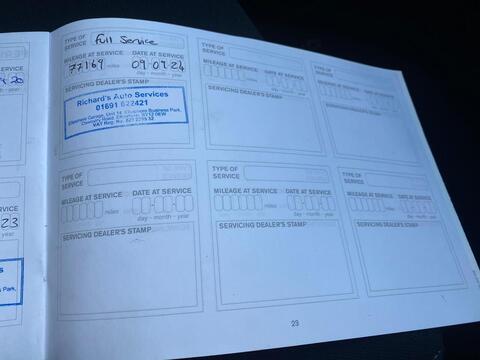 TYPE OF SERVICE Full Service
MILEAGE AT SERVICE DATE AT SERVICE
77169 miles 09-07-24
day - month - year
SERVICING DEALER'S STAMP
Richard's Auto Services
01691 622421
Ellesmere Business Park,
TYPE OF SERVICE
MILEAGE AT SERVICE DATE AT SERVICE
miles
day - month - year
SERVICING DEALER'S STAMP
TYPE OF SERVICE
MILEAGE AT SERVICE DATE AT SERVICE
miles
day - month - year
SERVICING DEALER'S STAMP
20
year
TYPE OF SERVICE
MILEAGE AT SERVICE DATE AT SERVICE
miles
day - month - year
SERVICING DEALER'S STAMP
TYPE OF SERVICE
MILEAGE AT SERVICE DATE AT SERVICE
miles
day - month - year
SERVICING DEALER'S STAMP
TYPE OF SERVICE
MILEAGE AT SERVICE DATE AT SERVICE
miles
day - month - year
SERVICING DEALER'S STAMP
23
year
Park,
23